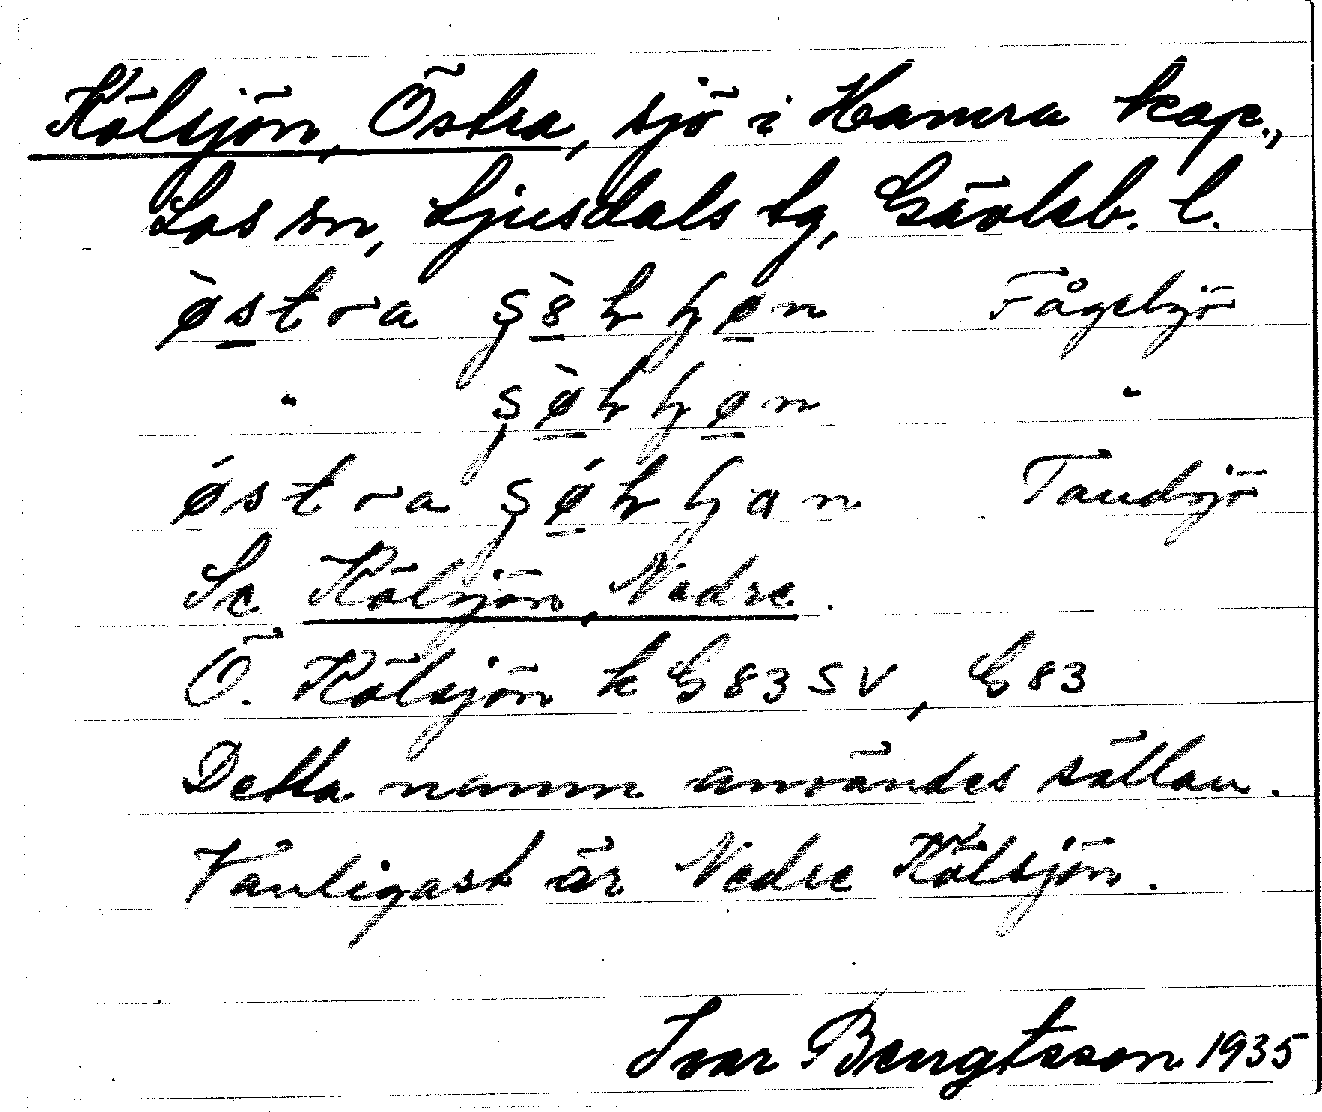 Kölsjön, Östra, sjö i Hamra kap.,
Los sn, Ljusdals tg, Gävleb. l.
östra Fågelsjö
" "
östra Tandsjö
Se Kölsjön, Nedre.
Ö. Kölsjön k G 83 SV, G 83
Detta namn användes sällan.
Vanligast är Nedre Kölsjön.
Ivar Bengtsson 1935